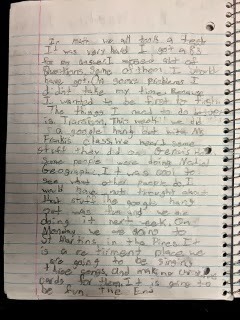 In math we all took a test
It was very hard I got a 85
for my answer. I missed alot of
questions. Some of them I would
have got. On some problems I
didn't take my time. Because
I wanted to be first to finish
The things I need to
is This week we did
a google hang out with Ms
Franks class. We heard some
stuff they did over
Some people were doing World
Geographic. It was cool to
see what other places do I
would have not thought about
that stuff the google hang
out was fun and we are
doing it next week. On
Monday we are going to
St Martins in the Pines It
is a retirement place we
are going to be singing
those songs, and making
cards for them. It is going to
be fun. The End